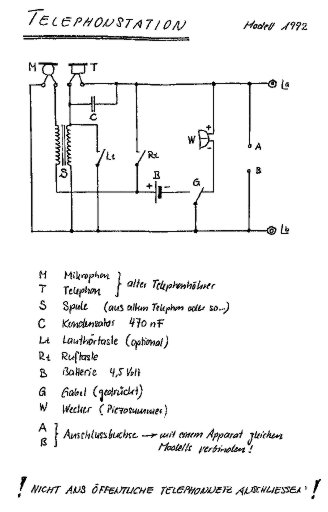 TELEPHONSTATION Modell 1992
M T La
C
A
W
Lt Rt
S B
B G
Lb
M Mikrophon
T Telephon } alter Telephonhörer
S Spule (aus altem Telephon oder so...)
C Kondensator 470 nF
Lt Lauthörtaste (optional)
Rt Ruftaste
B Batterie 4,5 Volt
G Gabel (gedrückt)
W Wecker (Piezosummer)
A
B } Anschlussbuchse → mit einem Apparat gleichen
Modells verbinden!
! NICHT ANS ÖFFENTLICHE TELEPHONNETZ ANSCHLIESSEN! !